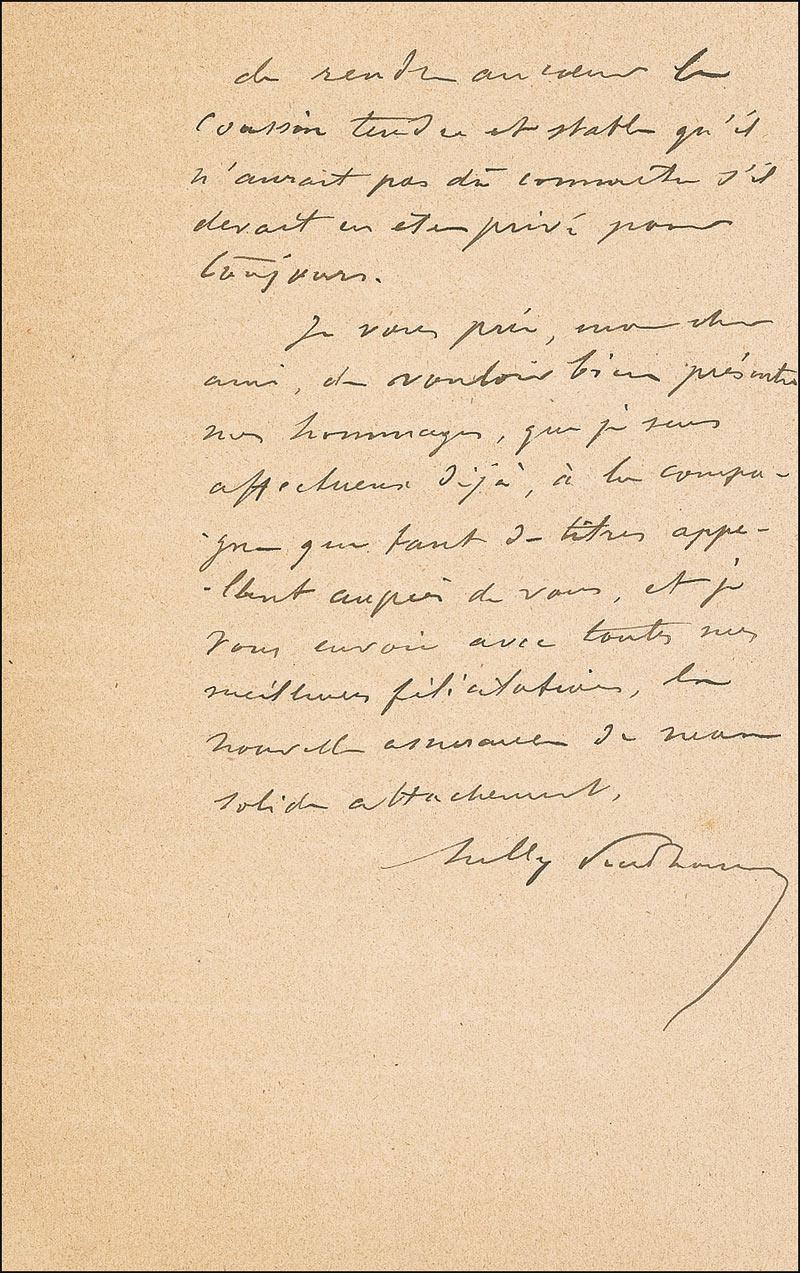 de rendre au cœur le
coussin tendre et stable qu'il
n'aurait pas dû connaître s'il
devait en être privé pour
toujours.
Je vous prie, mon cher
ami, de vouloir bien présenter
mes hommages, que je sens
affectueux déjà, à la compa-
-gne que tant de titres appe-
-llent auprès de vous, et je
vous envoie avec toutes mes
meilleures félicitations, la
nouvelle assurance de mon
solide attachement.
Sully Prudhomme